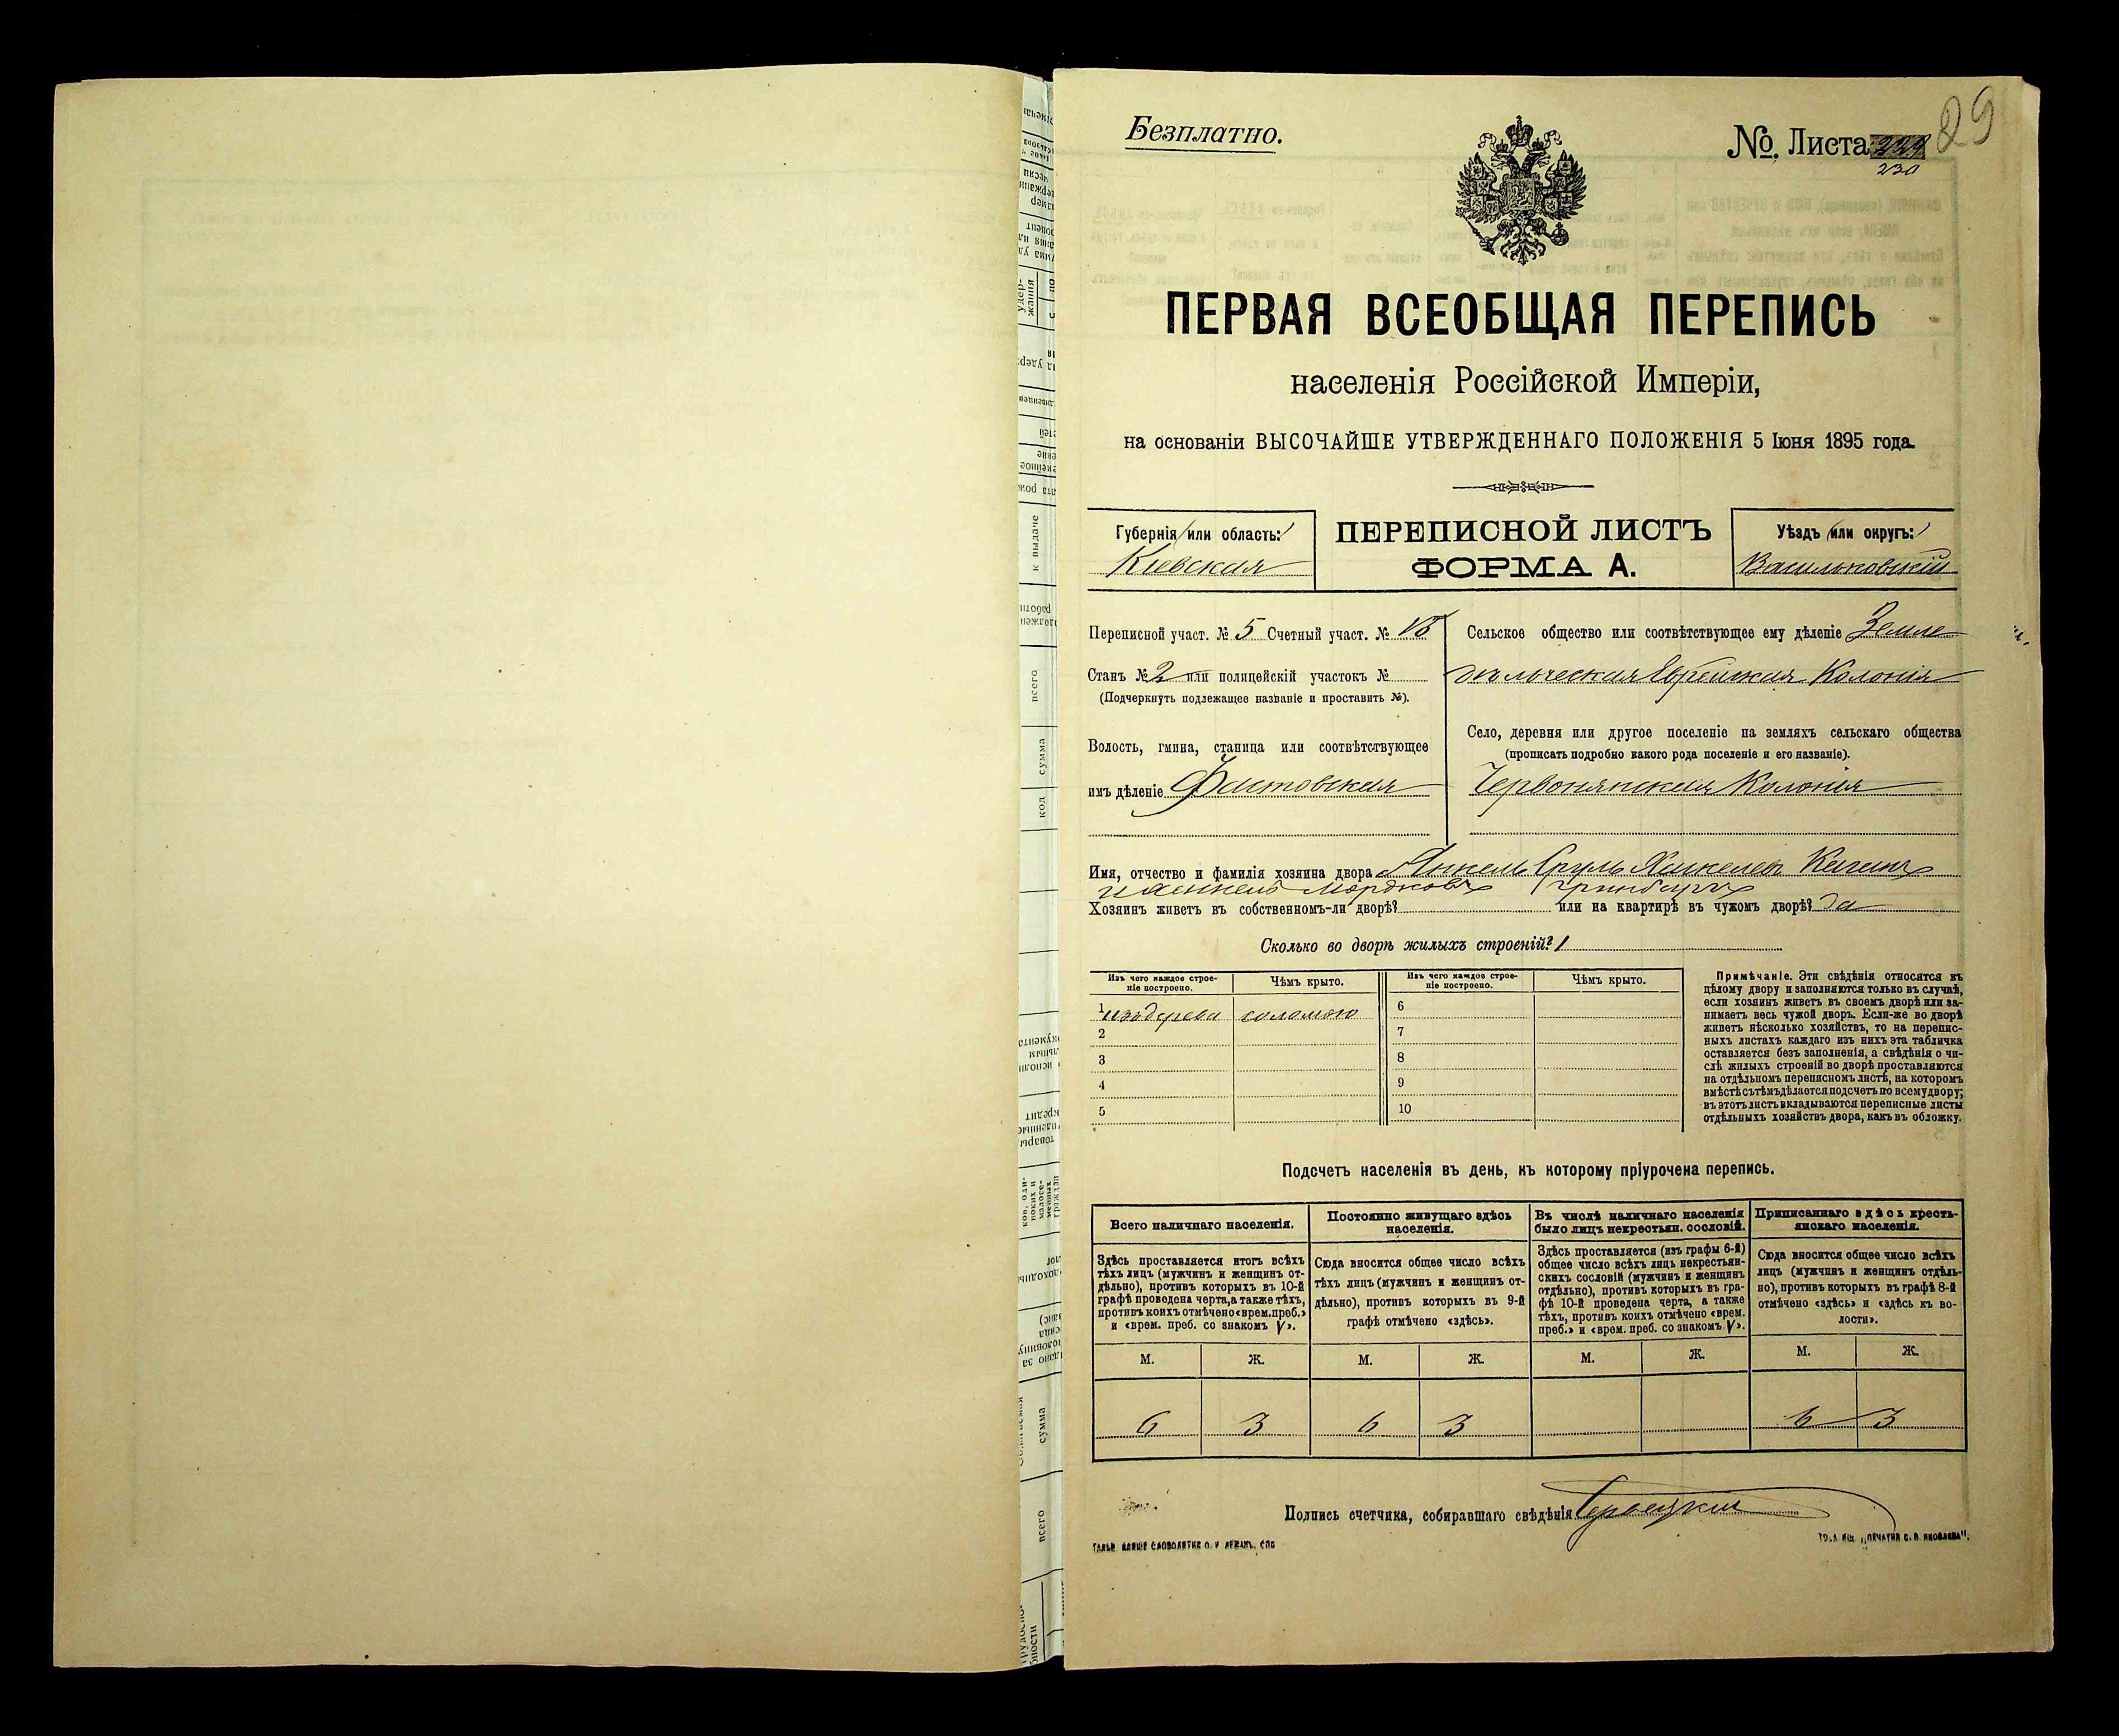 Безплатно.
№ Листа 229
230
29
ПЕРВАЯ ВСЕОБЩАЯ ПЕРЕПИСЬ
населенія Россійской Имперіи,
на основаніи ВЫСОЧАЙШЕ УТВЕРЖДЕННАГО ПОЛОЖЕНІЯ 5 Іюня 1895 года.
Губернія или область:
Кіевская
ПЕРЕПИСНОЙ ЛИСТЪ
ФОРМА А.
Уѣздъ или округъ:
Васильковскій
Переписной участ. № 5 Счетный участ. №
Станъ № 2 или полицейскій участокъ №
(Подчеркнуть подлежащее названіе и проставить №).
Волость, гмина, станица или соотвѣтствующее
имъ дѣленіе Фастовская
Сельское общество или соотвѣтствующее ему дѣленіе Земле
дѣльческая Еврейская Колонія
Село, деревня или другое поселеніе на земляхъ сельскаго общества
(прописать подробно какого рода поселеніе и его названіе).
Червонянская Колонія
Имя, отчество и фамилія хозяина двора Янкель Сруль Хаскелевъ
Мордковъ Гринбергъ
Хозяинъ живетъ въ собственномъ-ли дворѣ? или на квартирѣ въ чужомъ дворѣ? да
Сколько во дворѣ жилыхъ строеній? 1
Изъ чего каждое строе-
ніе построено.
Чѣмъ крыто.
Изъ чего каждое строе-
ніе построено.
Чѣмъ крыто.
1 изъ дерева соломою 6
2 7
3 8
4 9
5 10
Примѣчаніе. Эти свѣдѣнія относятся къ
цѣлому двору и заполняются только въ случаѣ,
если хозяинъ живетъ въ своемъ дворѣ или за-
нимаетъ весь чужой дворъ. Если-же во дворѣ
живетъ нѣсколько хозяйствъ, то на перепис-
ныхъ листахъ каждаго изъ нихъ эта табличка
оставляется безъ заполненія, а свѣдѣнія о чи-
слѣ жилыхъ строеній во дворѣ проставляются
на отдѣльномъ переписномъ листѣ, на которомъ
вмѣстѣ съ тѣмъ дѣлается подсчетъ по всему двору;
въ этотъ листъ вкладываются переписные листы
отдѣльныхъ хозяйствъ двора, какъ въ обложку.
Подсчетъ населенія въ день, къ которому пріурочена перепись.
Всего наличнаго населенія.
Здѣсь проставляется итогъ всѣхъ
тѣхъ лицъ (мужчинъ и женщинъ от-
дѣльно), противъ которыхъ въ 10-й
графѣ проведена черта, а также тѣхъ,
противъ коихъ отмѣчено «врем. преб.»
и «врем. преб. со знакомъ V».
Постоянно живущаго здѣсь
населенія.
Сюда вносится общее число всѣхъ
тѣхъ лицъ (мужчинъ и женщинъ от-
дѣльно), противъ которыхъ въ 9-й
графѣ отмѣчено «здѣсь».
Въ числѣ наличнаго населенія
было лицъ некрестьян. сословій.
Здѣсь проставляется (изъ графы 6-й)
общее число всѣхъ лицъ некрестьян-
скихъ сословій (мужчинъ и женщинъ
отдѣльно), противъ которыхъ въ гра-
фѣ 10-й проведена черта, а также
тѣхъ, противъ коихъ отмѣчено «врем.
преб.» и «врем. преб. со знакомъ V».
Приписаннаго здѣсь кресть-
янскаго населенія.
Сюда вносится общее число всѣхъ
лицъ (мужчинъ и женщинъ отдѣль-
но), противъ которыхъ въ графѣ 8-й
отмѣчено «здѣсь» и «здѣсь въ во-
лости».
М. Ж. М. Ж. М. Ж. М. Ж.
6 3 6 3 6 3
Подпись счетчика, собиравшаго свѣдѣнія